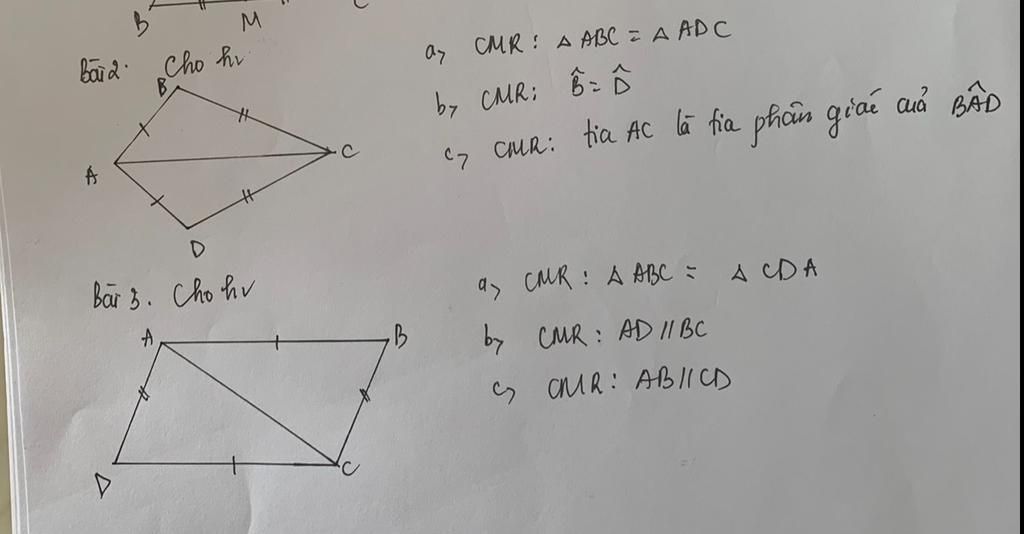 B M C
Bài 2. Cho hv
a, CMR: △ ABC = △ ADC
b, CMR: B̂ = D̂
c, CMR: tia AC là tia phân giác của BÂD
B
A
C
D
Bài 3. Cho hv
a, CMR: △ ABC = △ CDA
b, CMR: AD // BC
c, CMR: AB // CD
A
B
D
C